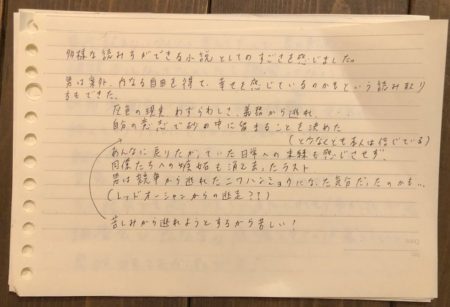 多様な読み方ができる小説としてのすごさを感じました。
男は案外、内なる自由を得て、幸せを感じているのかもという読み取り
方もできた。
灰色の現実 わずらわしさ、義務から逃れ
自分の意志で砂の中に留まることを決めた
(と少なくとも本人は信じている)
あんなに戻りたがっていた日常への未練も感じさせず
同僚たちへの嫉妬も消え去ったラスト
男は競争から逃れたニワハンミョウになった気分だったのかも…
(レッドオーシャンからの逃走?!)
苦しみから逃れようとするから苦しい!